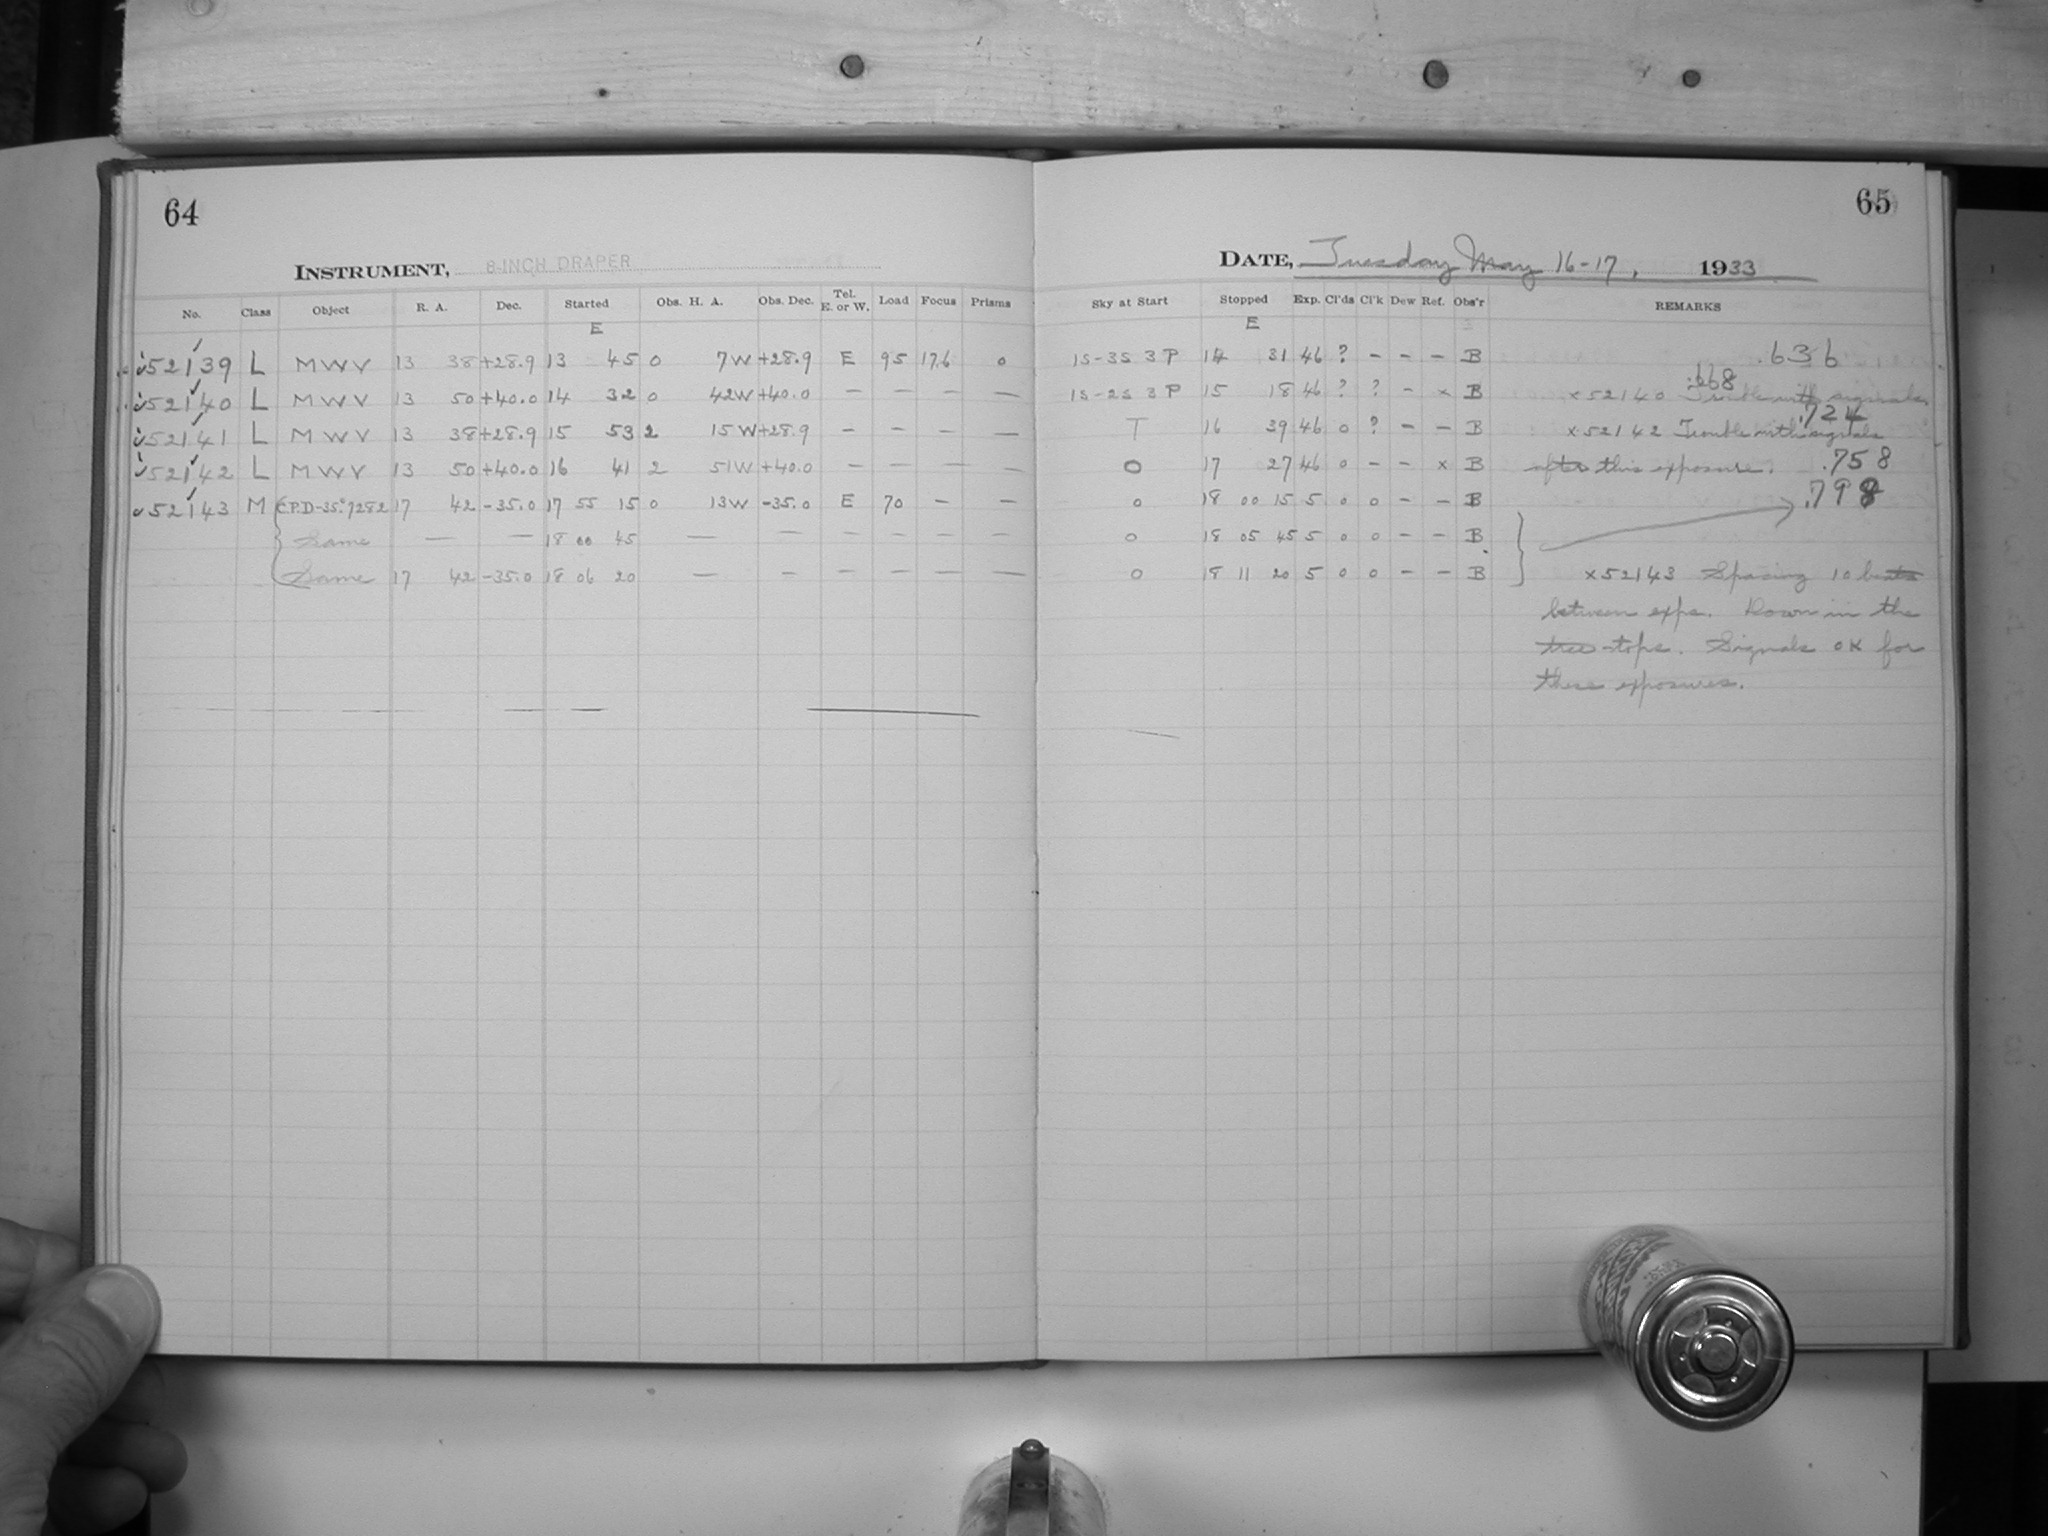 64
INSTRUMENT, 8-INCH DRAPER
No. Class Object R. A. Dec. Started Obs. H. A. Obs. Dec. Tel. E. or W. Load Focus Prisms
E
52139 L MWV 13 38 +28.9 13 45 0 7W +28.9 E 95 17.6 0
52140 L MWV 13 50 +40.0 14 32 0 42W +40.0 — — — —
52141 L MWV 13 38 +28.9 15 53 2 15W +28.9 — — — —
52142 L MWV 13 50 +40.0 16 41 2 51W +40.0 — — — —
52143 M C.P.D-35°7282 17 42 -35.0 17 55 15 0 13W -35.0 E 70 — —
Same — — 18 00 45 — — — — — —
Same 17 42 -35.0 18 06 20 — — — — — —
65
DATE, Tuesday May 16-17, 1933
Sky at Start Stopped Exp. Cl'ds Cl'k Dew Ref. Obs'r REMARKS
E
1S-3S 3P 14 31 46 ? - - - B .636
1S-2S 3P 15 18 46 ? ? - x B x52140 Trouble with signals .668
T 16 39 46 0 ? - - B x52142 Trouble with signals .724
0 17 27 46 0 - - x B after this exposure. .758
0 18 00 15 5 0 0 - - B .798
0 18 05 45 5 0 0 - - B
0 18 11 20 5 0 0 - - B x52143 Spacing 10 beats
between exps. Down in the
tree-tops. Signals OK for
these exposures.